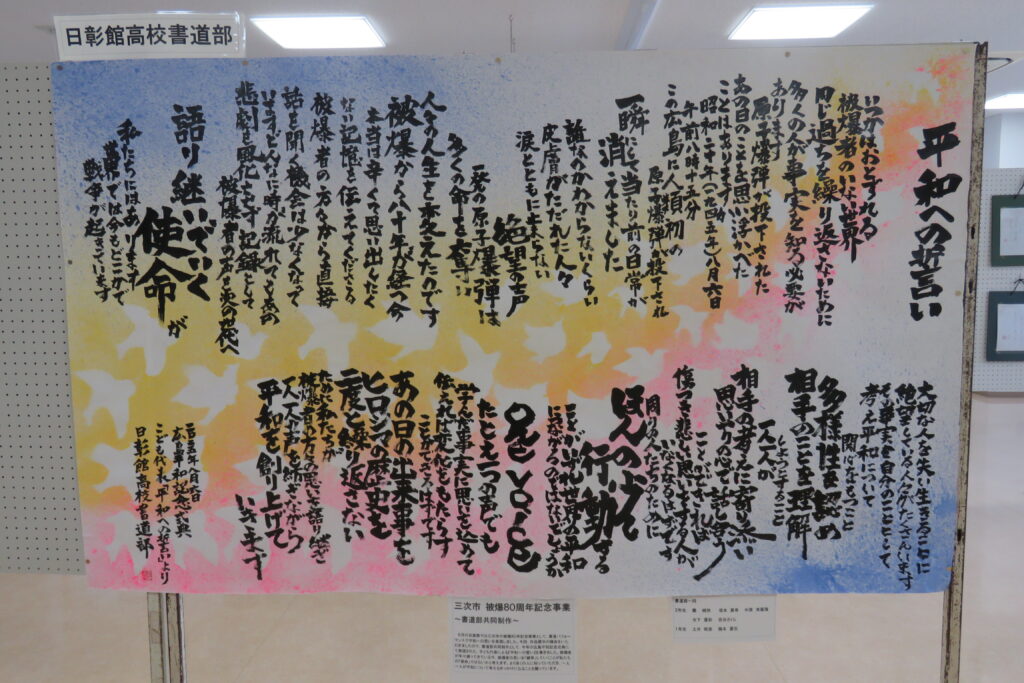 日彰館高校書道部
平和への誓い
いつかはおとずれる
被爆者のいない世界
同じ過ちを繰り返さないために
多くの人が事実を知る必要が
あります
原子爆弾が投下された
あの日のことを思い浮かべた
ことはありますか
昭和二十年(一九四五年)八月六日
午前八時十五分
この広島に人類初の
原子爆弾が投下され
一瞬にして当たり前の日常が
消えました
誰なのかわからないくらい
皮膚がただれた人々
涙とともに止まらない
絶望の声
一発の原子爆弾は
多くの命を奪い
人々の人生を変えたのです
被爆から八十年が経つ今
本当は辛くて思い出したく
ない記憶を伝えてくださる
被爆者の方々から直接
話を聞く機会は少なくなって
います
どんなに時が流れても
あの悲劇を風化させず記録として
被爆者の声を次の世代へ
語り継いでいく
使命が
私たちにはあります
世界では今もどこかで
戦争が起きています
大切な人を失い生きることに
絶望している人々がたくさんいます
その事実を自分のこととして
考え平和について
関心をもつこと
多様性を認め
相手のことを理解
しようとすること
一人一人が
相手の考えに寄り添い
思いやりの心で話し合う
ことができれば
傷つき悲しい思いをする人が
いなくなるはずです
周りの人たちのために
ほんの少し
行動する
ことがいずれ世界の平和
に繋がるのではないでしょうか
One voice
たとえ一つの声でも
学んだ事実に思いを込めて
伝えれば変化をもたらす
ことができるはずです
あの日の出来事を
ヒロシマの歴史を
二度と繰り返さない
ために私たちが
被爆者の方々の思いを語り継ぎ
一人一人の声を紡ぎながら
平和を創り上げて
いきます
広島平和記念式典
こども代表平和への誓いより
日彰館高校書道部
三次市 被爆80周年記念事業
~書道部共同制作~
書道部一同